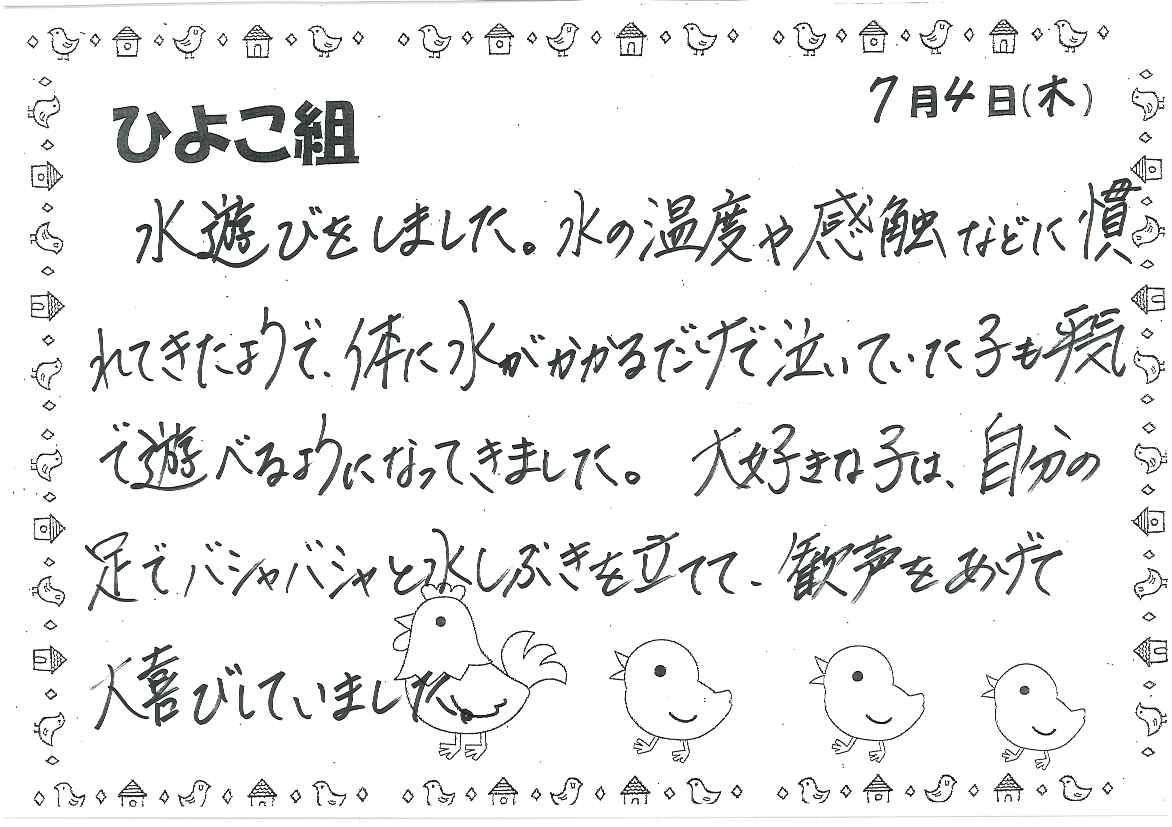 7月4日(木)
ひよこ組
水遊びをしました。水の温度や感触などに慣
れてきたようで、体に水がかかるだけで泣いていた子も平気
で遊べるようになってきました。 大好きな子は、自分の
足でバシャバシャと水しぶきを立てて、歓声をあげて
大喜びしていました。